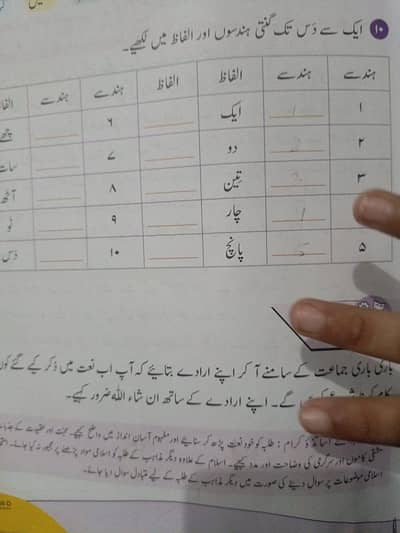 ۱۰ ایک سے دَس تک گنتی ہندسوں اور الفاظ میں لکھیے۔
ہندسے ہندسے الفاظ الفاظ ہندسے ہندسے
۱ ایک ۶ چھ
۲ دو ۷ سات
۳ تین ۸ آٹھ
چار ۹ نو
۵ 5 پانچ ۱۰ دس
باری باری جماعت کے سامنے آ کر اپنے ارادے بتائیے کہ آپ اب نعت میں ذکر کیے گئے
گے۔ اپنے ارادے کے ساتھ ان شاء اللہ ضرور کہیے۔
کرام: طلبہ کو خود نعت پڑھ کر سنائیے اور مفہوم آسان انداز میں واضح کیجیے۔ محبت اور عقیدت کے
مشقی کاموں اور سرگرمی کی وضاحت اور مدد کیجیے۔ اسلام کے علاوہ دیگر مذاہب کے طلبہ کو اسلامی مواد پڑھنے پر مجبور نہ کیا جائے۔
اسلامی موضوعات پر سوال دینے کی صورت میں دیگر مذاہب کے طلبہ کے لیے متبادل سوال دیا جائے۔